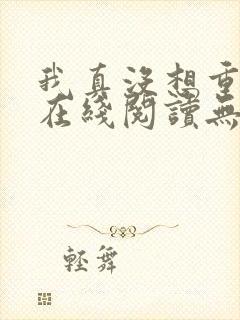 我真沒想重
在綫閱讀無
輕舞